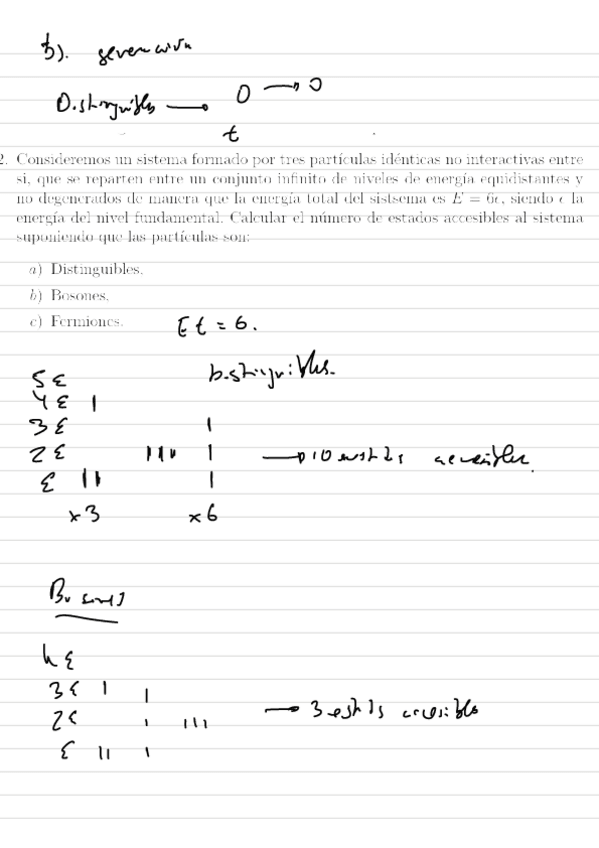 b).
Distinguibles → 0 → 0
t
2. Consideremos un sistema formado por tres partículas idénticas no interactivas entre
si, que se reparten entre un conjunto infinito de niveles de energía equidistantes y
no degenerados de manera que la energía total del sistsema es E = 6ϵ, siendo ϵ la
energía del nivel fundamental. Calcular el número de estados accesibles al sistema
suponiendo que las partículas son:
a) Distinguibles,
b) Bosones,
c) Fermiones.
Et = 6.
Distinguibles.
5ε
4ε |
3ε |
2ε ||| | → 10 estados accesibles.
ε || |
x3 x6
Bosones
4ε
3ε | |
2ε | ||| → 3 estados accesibles
ε || |